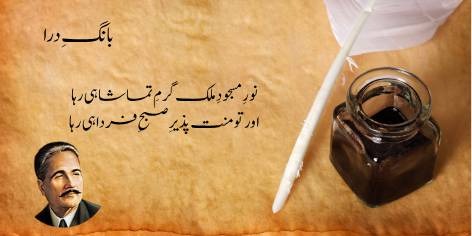 بانگِ درا
نورِ مسجودِ ملک گرمِ تماشا ہی رہا
اور تو منت پذیرِ صبحِ فردا ہی رہا